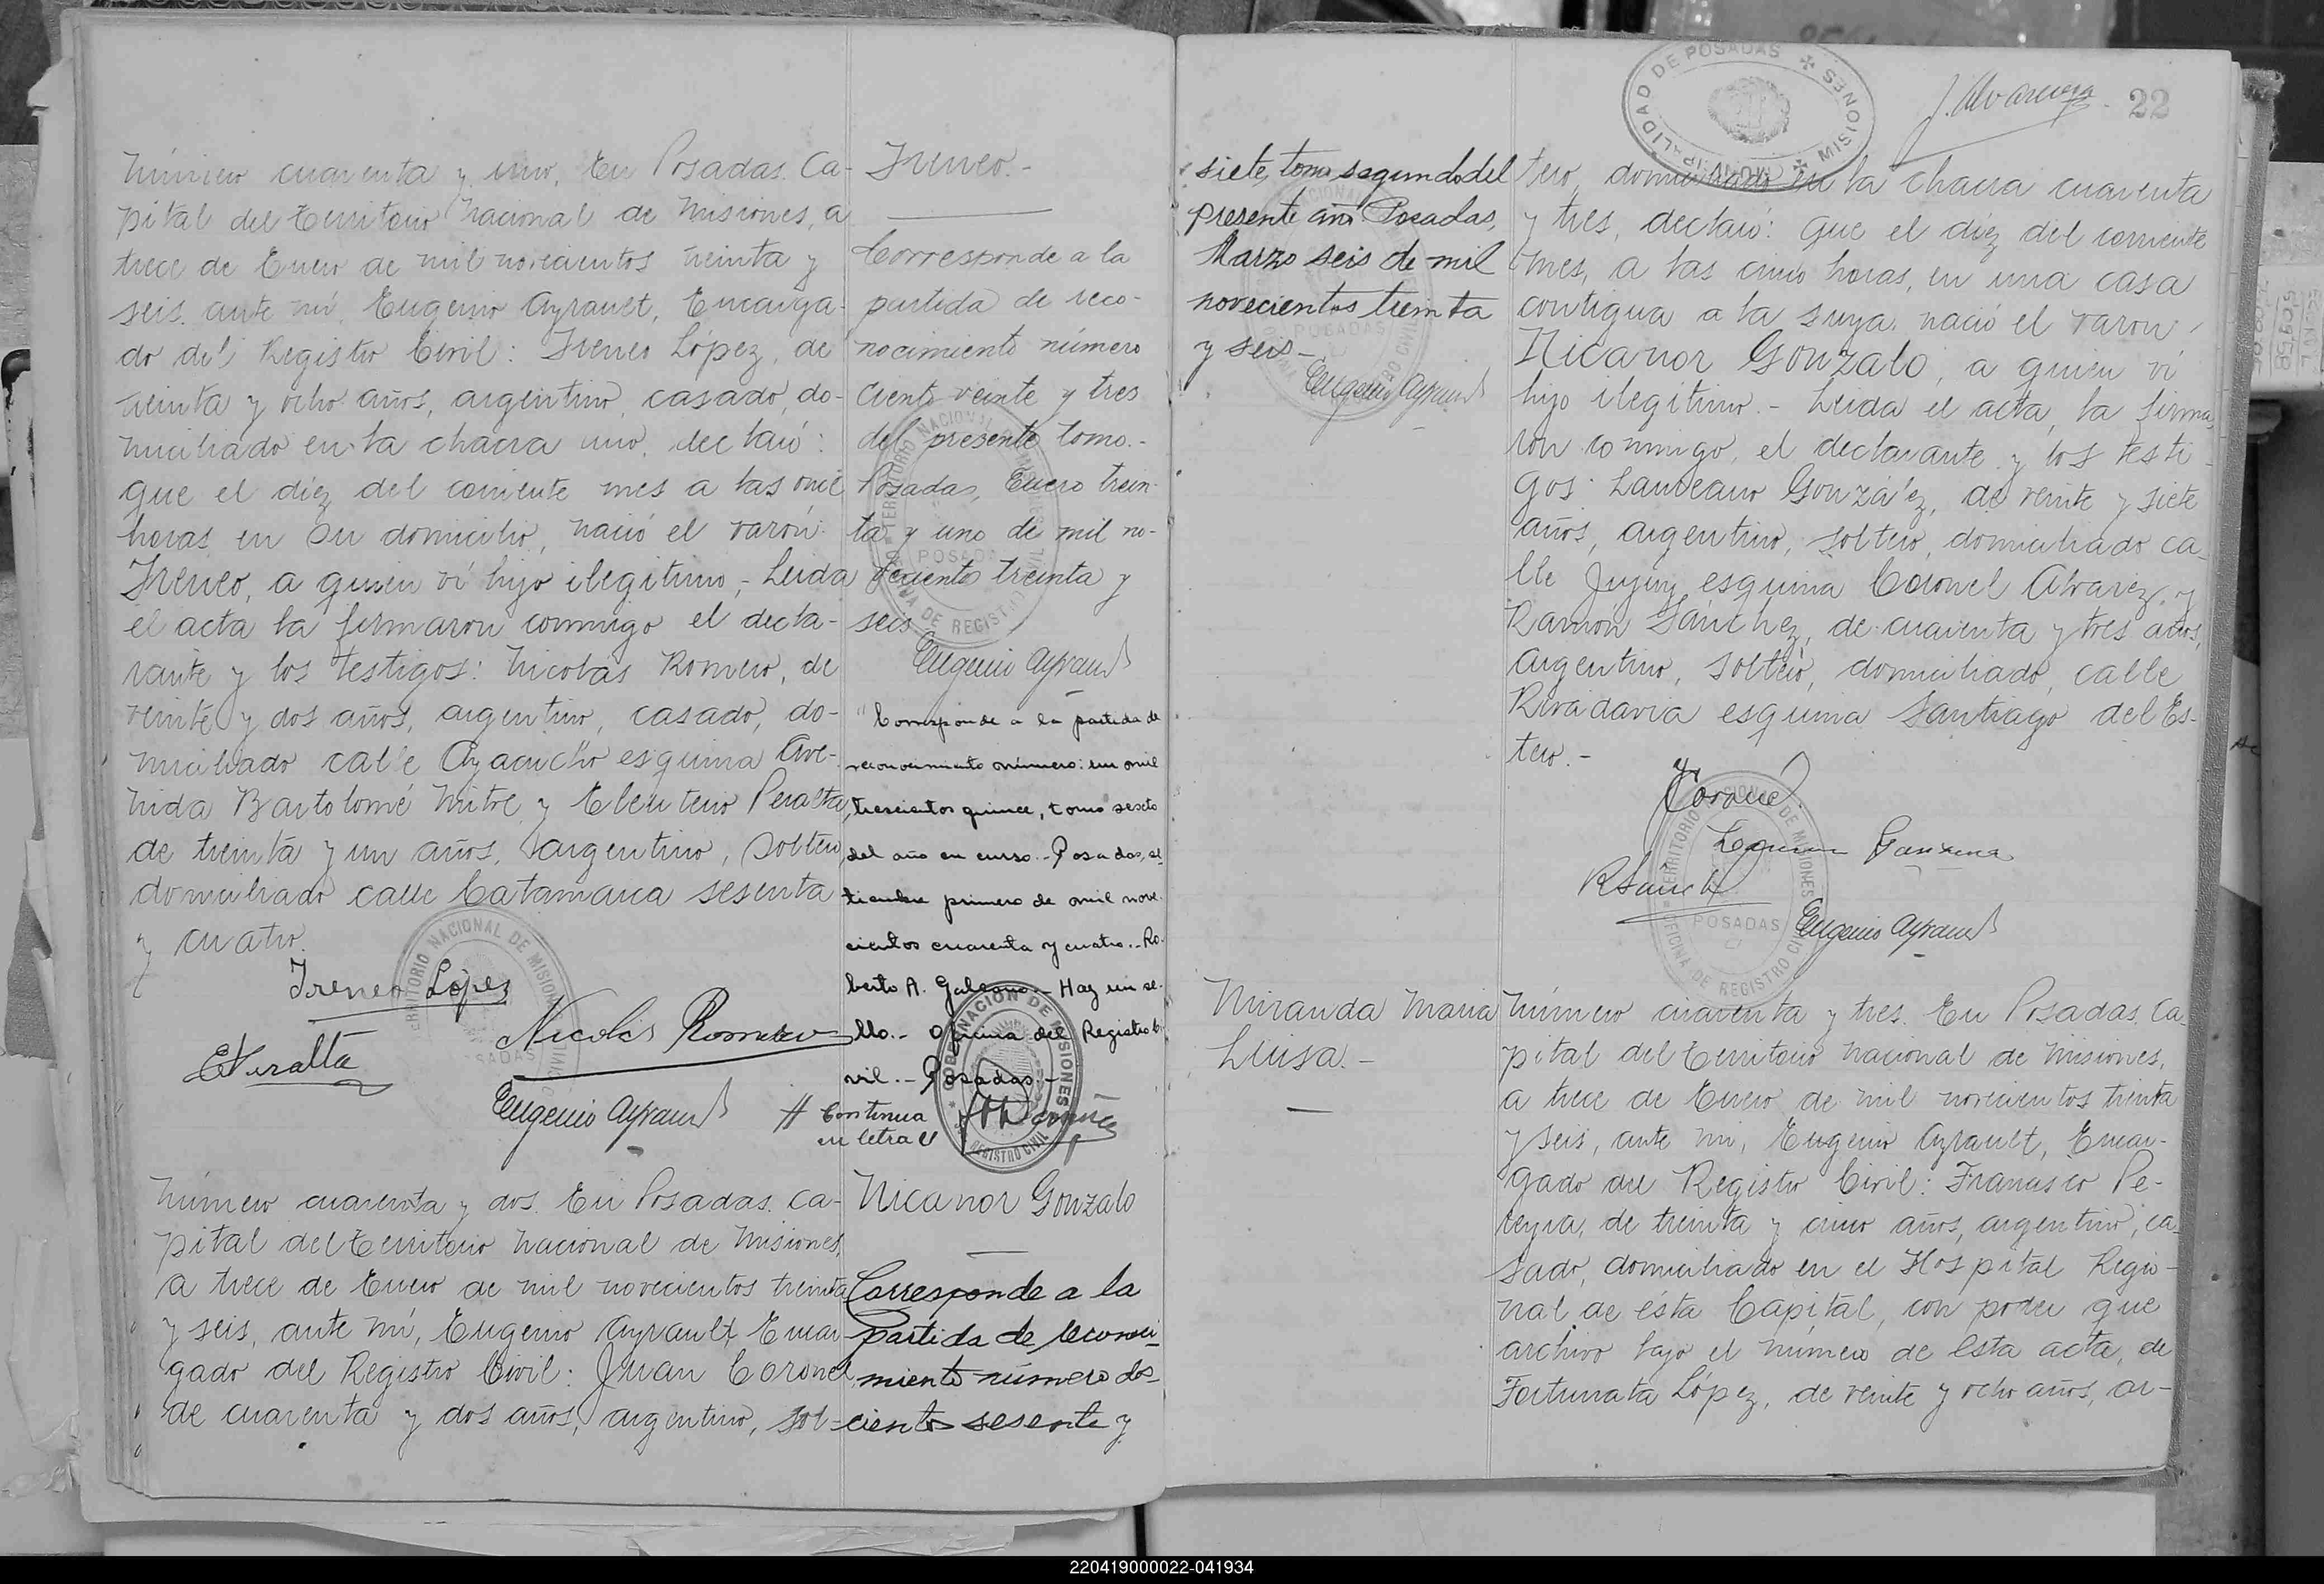 Número cuarenta y uno. En Posadas, Ca-
pital del Territorio Nacional de Misiones, a
trece de Enero de mil novecientos treinta y
seis, ante mí, Eugenio Ayrault, Encarga-
do del Registro Civil: Ireneo López, de
treinta y ocho años, argentino, casado, do-
miciliado en la chacra uno, declaró:
que el diez del corriente mes a las once
horas en su domicilio, nació el varón:
Ireneo, a quien ví hijo ilegítimo.- Leida
el acta la firmaron conmigo el decla-
rante y los testigos: Nicolás Romero, de
veinte y dos años, argentino, casado, do-
miciliado calle Ayacucho esquina Ave-
nida Bartolomé Mitre y Eleuterio Peralta,
de treinta y un años, argentino, soltero,
domiciliado calle Catamarca sesenta
y cuatro.
Ireneo López
EPeralta
Nicolás Romero
Eugenio Ayrault
Ireneo.-
Corresponde a la
partida de reco-
nocimiento número
ciento veinte y tres
del presente tomo.-
Posadas, Enero trein-
ta y uno de mil no-
vecientos treinta y
seis
Eugenio Ayrault
"Corresponde a la partida de
reconocimiento número: un mil
trescientos quince, tomo sexto
del año en curso.- Posadas, se-
tiembre primero de mil nove-
cientos cuarenta y cuatro.- Ro-
berto A. Galeano.- Hay un se-
llo.- Oficina del Registro Ci-
vil.- Posadas.-
# Continua
en letra
GOBERNACIÓN DE MISIONES
REGISTRO CIVIL
TERRITORIO NACIONAL DE MISIONES
POSADAS
OFICINA DE REGISTRO CIVIL
Número cuarenta y dos. En Posadas, Ca-
pital del Territorio Nacional de Misiones,
a trece de Enero de mil novecientos treinta
y seis, ante mí, Eugenio Ayrault, Encar-
gado del Registro Civil: Juan Coronel,
de cuarenta y dos años, argentino, sol-
Nicanor Gonzalo
Corresponde a la
Partida de reconoci-
miento número dos-
cientos sesenta y
siete, tomo segundo del
presente año. Posadas,
Marzo seis de mil
novecientos treinta
y seis-
Eugenio Ayrault
MUNICIPALIDAD DE POSADAS
MISIONES
22
tero, domiciliado en la chacra cuarenta
y tres, declaró: que el diez del corriente
mes, a las cinco horas, en una casa
contigua a la suya, nació el varón
Nicanor Gonzalo, a quien ví
hijo ilegítimo.- Leida el acta, la firma-
ron conmigo, el declarante y los testi-
gos: Laureano González, de veinte y siete
años, argentino, soltero, domiciliado ca-
lle Jujuy esquina Coronel Alvarez, y
Ramón Sánchez, de cuarenta y tres años,
argentino, soltero, domiciliado, calle
Rivadavia esquina Santiago del Es-
tero.-
RSanchez
Eugenio Ayrault
TERRITORIO NACIONAL DE MISIONES
POSADAS
OFICINA DE REGISTRO CIVIL
Miranda Maria
Luisa.-
Número cuarenta y tres. En Posadas, Ca-
pital del Territorio Nacional de Misiones,
a trece de Enero de mil novecientos treinta
y seis, ante mí, Eugenio Ayrault, Encar-
gado del Registro Civil: Francisco Pe-
reyra, de treinta y cinco años, argentino, ca-
sado, domiciliado en el Hospital Regio-
nal de ésta Capital, con poder que
archivo bajo el número de esta acta, de
Fortunata López, de veinte y ocho años, ar-
220419000022-041934